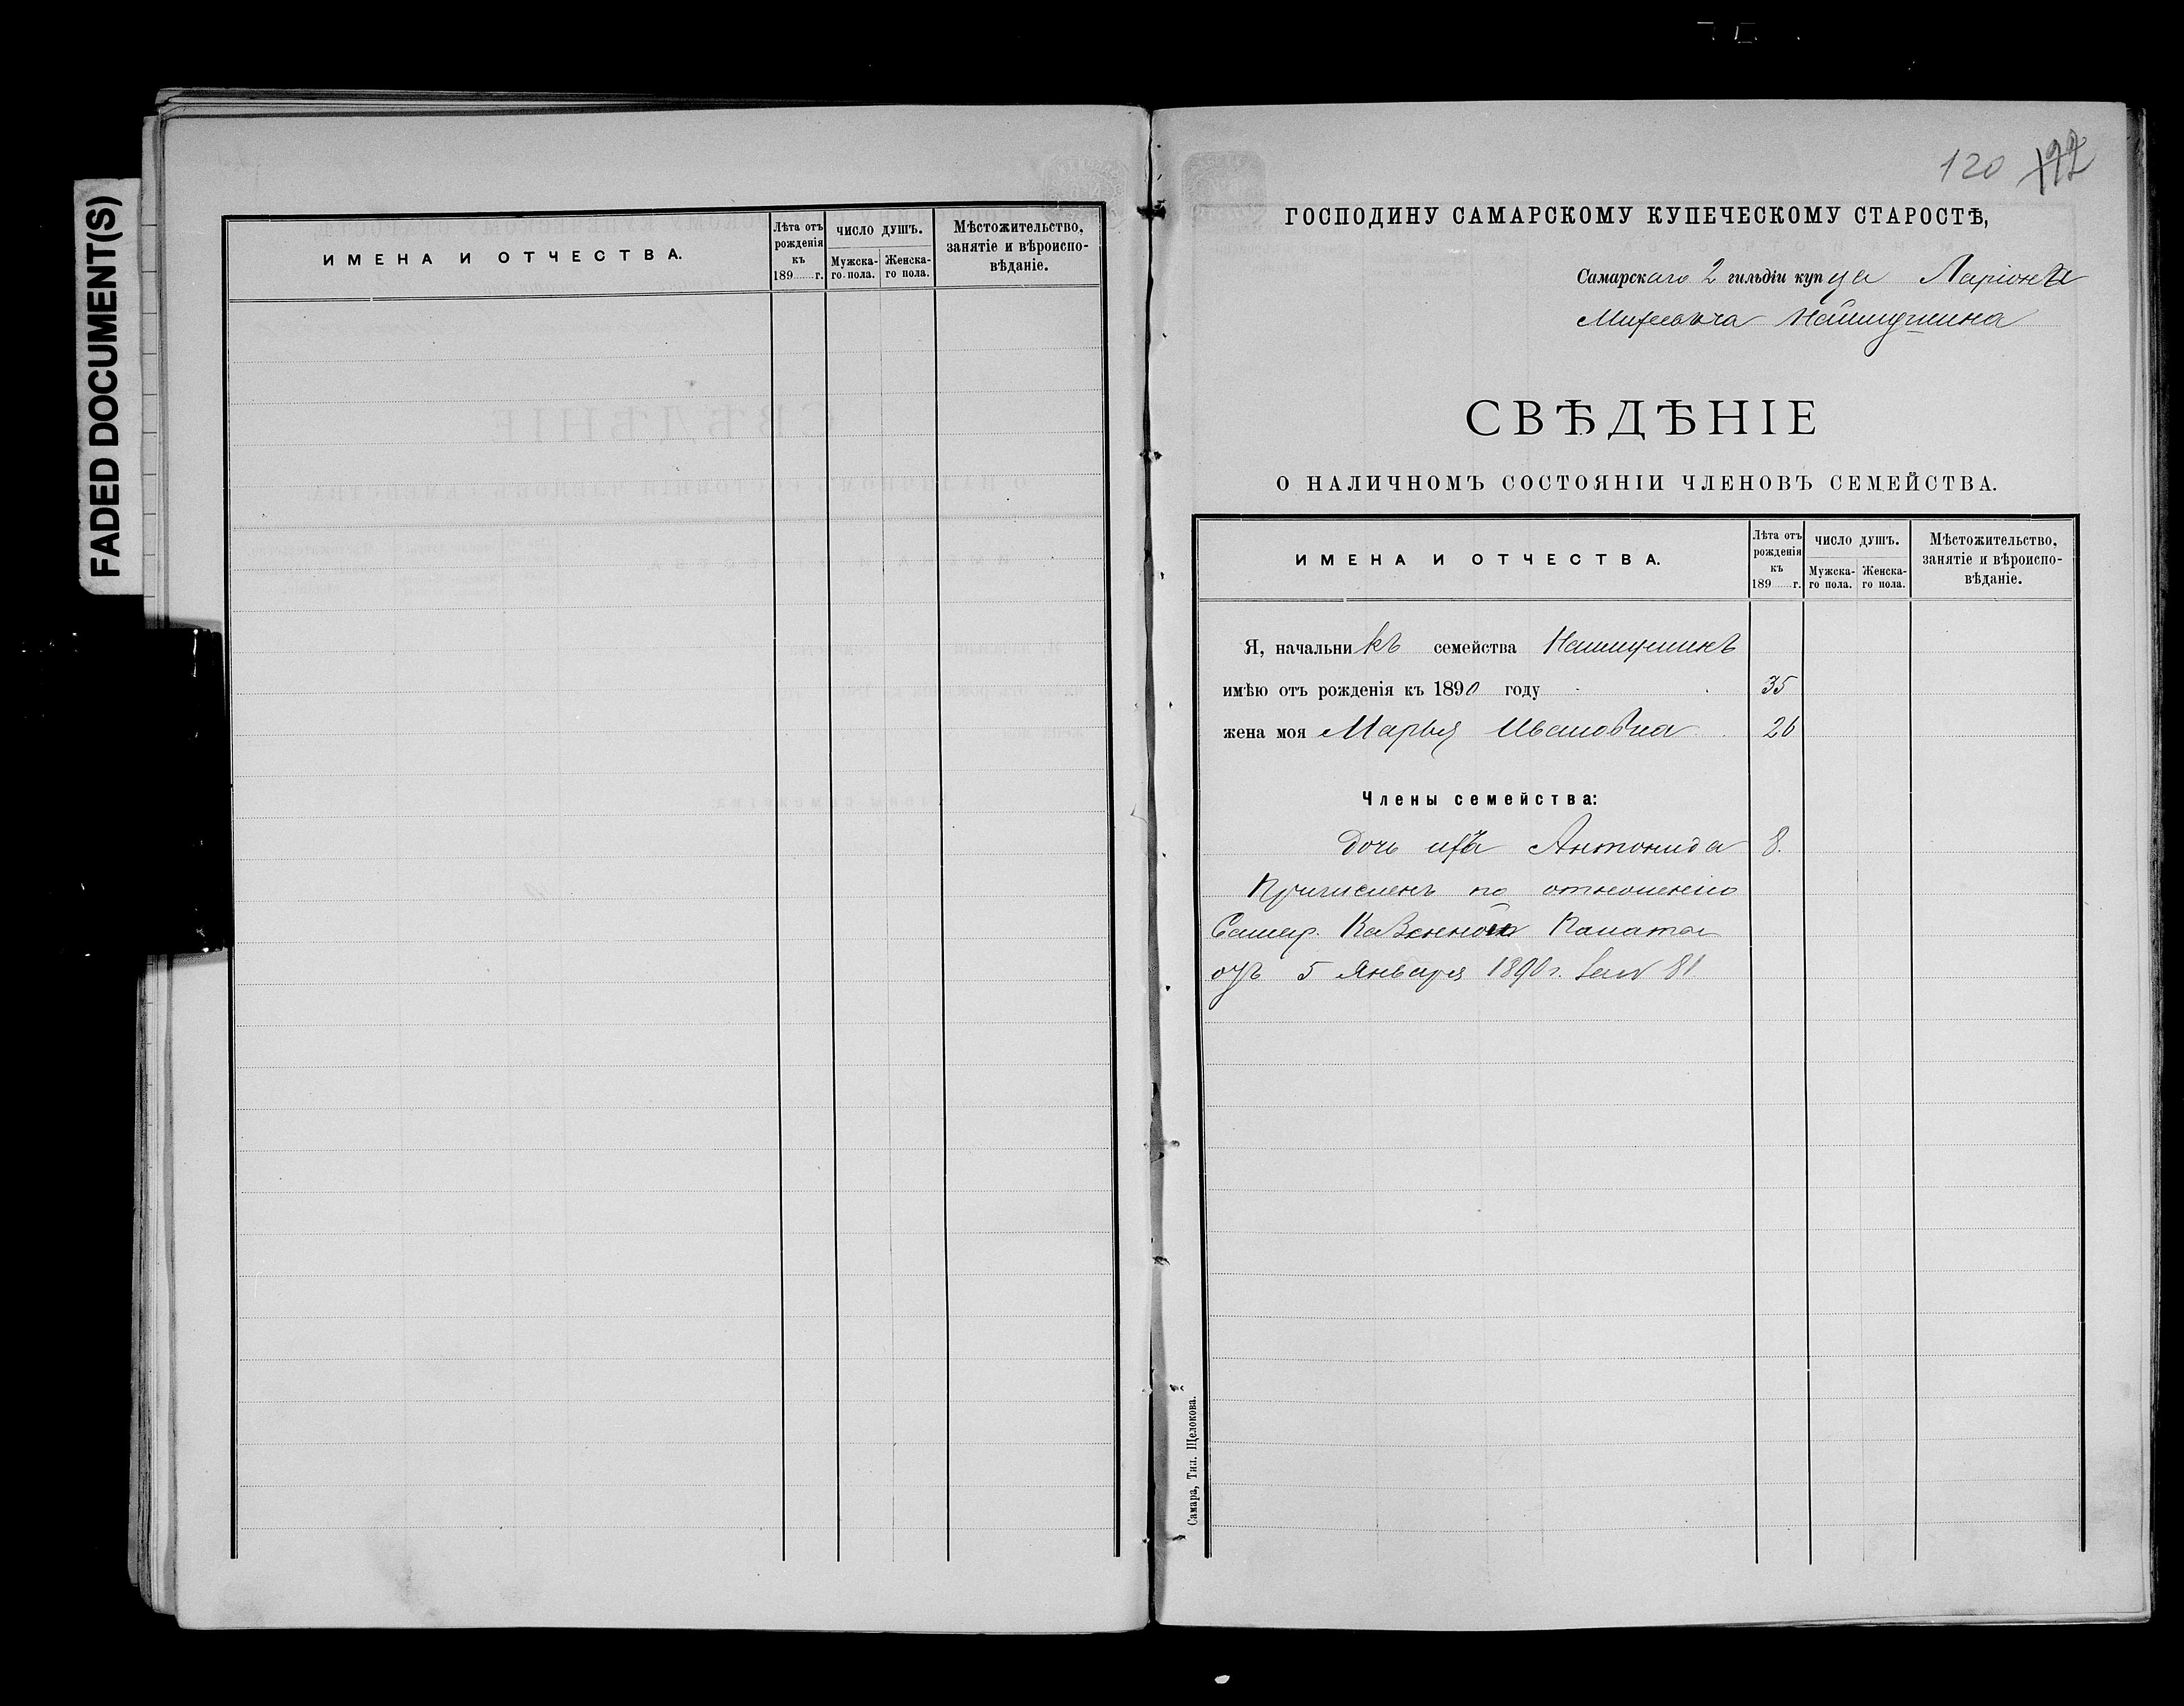 FADED DOCUMENT(S)
ИМЕНА И ОТЧЕСТВА.
Лѣта отъ рожденія къ 189 г.
ЧИСЛО ДУШЪ.
Мужска-го пола.
Женска-го пола.
Мѣстожительство, занятіе и вѣроиспо-вѣданіе.
120
ГОСПОДИНУ САМАРСКОМУ КУПЕЧЕСКОМУ СТАРОСТѢ,
Самарскаго 2 гильдіи купца Ларіона
СВѢДѢНІЕ
О НАЛИЧНОМЪ СОСТОЯНІИ ЧЛЕНОВЪ СЕМЕЙСТВА.
ИМЕНА И ОТЧЕСТВА.
Лѣта отъ рожденія къ 189 г.
ЧИСЛО ДУШЪ.
Мужска-го пола.
Женска-го пола.
Мѣстожительство, занятіе и вѣроиспо-вѣданіе.
Я, начальникъ семейства
имѣю отъ рожденія къ 1890 году 35
жена моя Марья Ивановна 26
Члены семейства:
Дочь ихъ Антонида 8.
Причисленъ по отношенію
Самар. Казенной Палаты
отъ 5 Января 1890 г. за № 81
Самара, Тип. Щелокова.